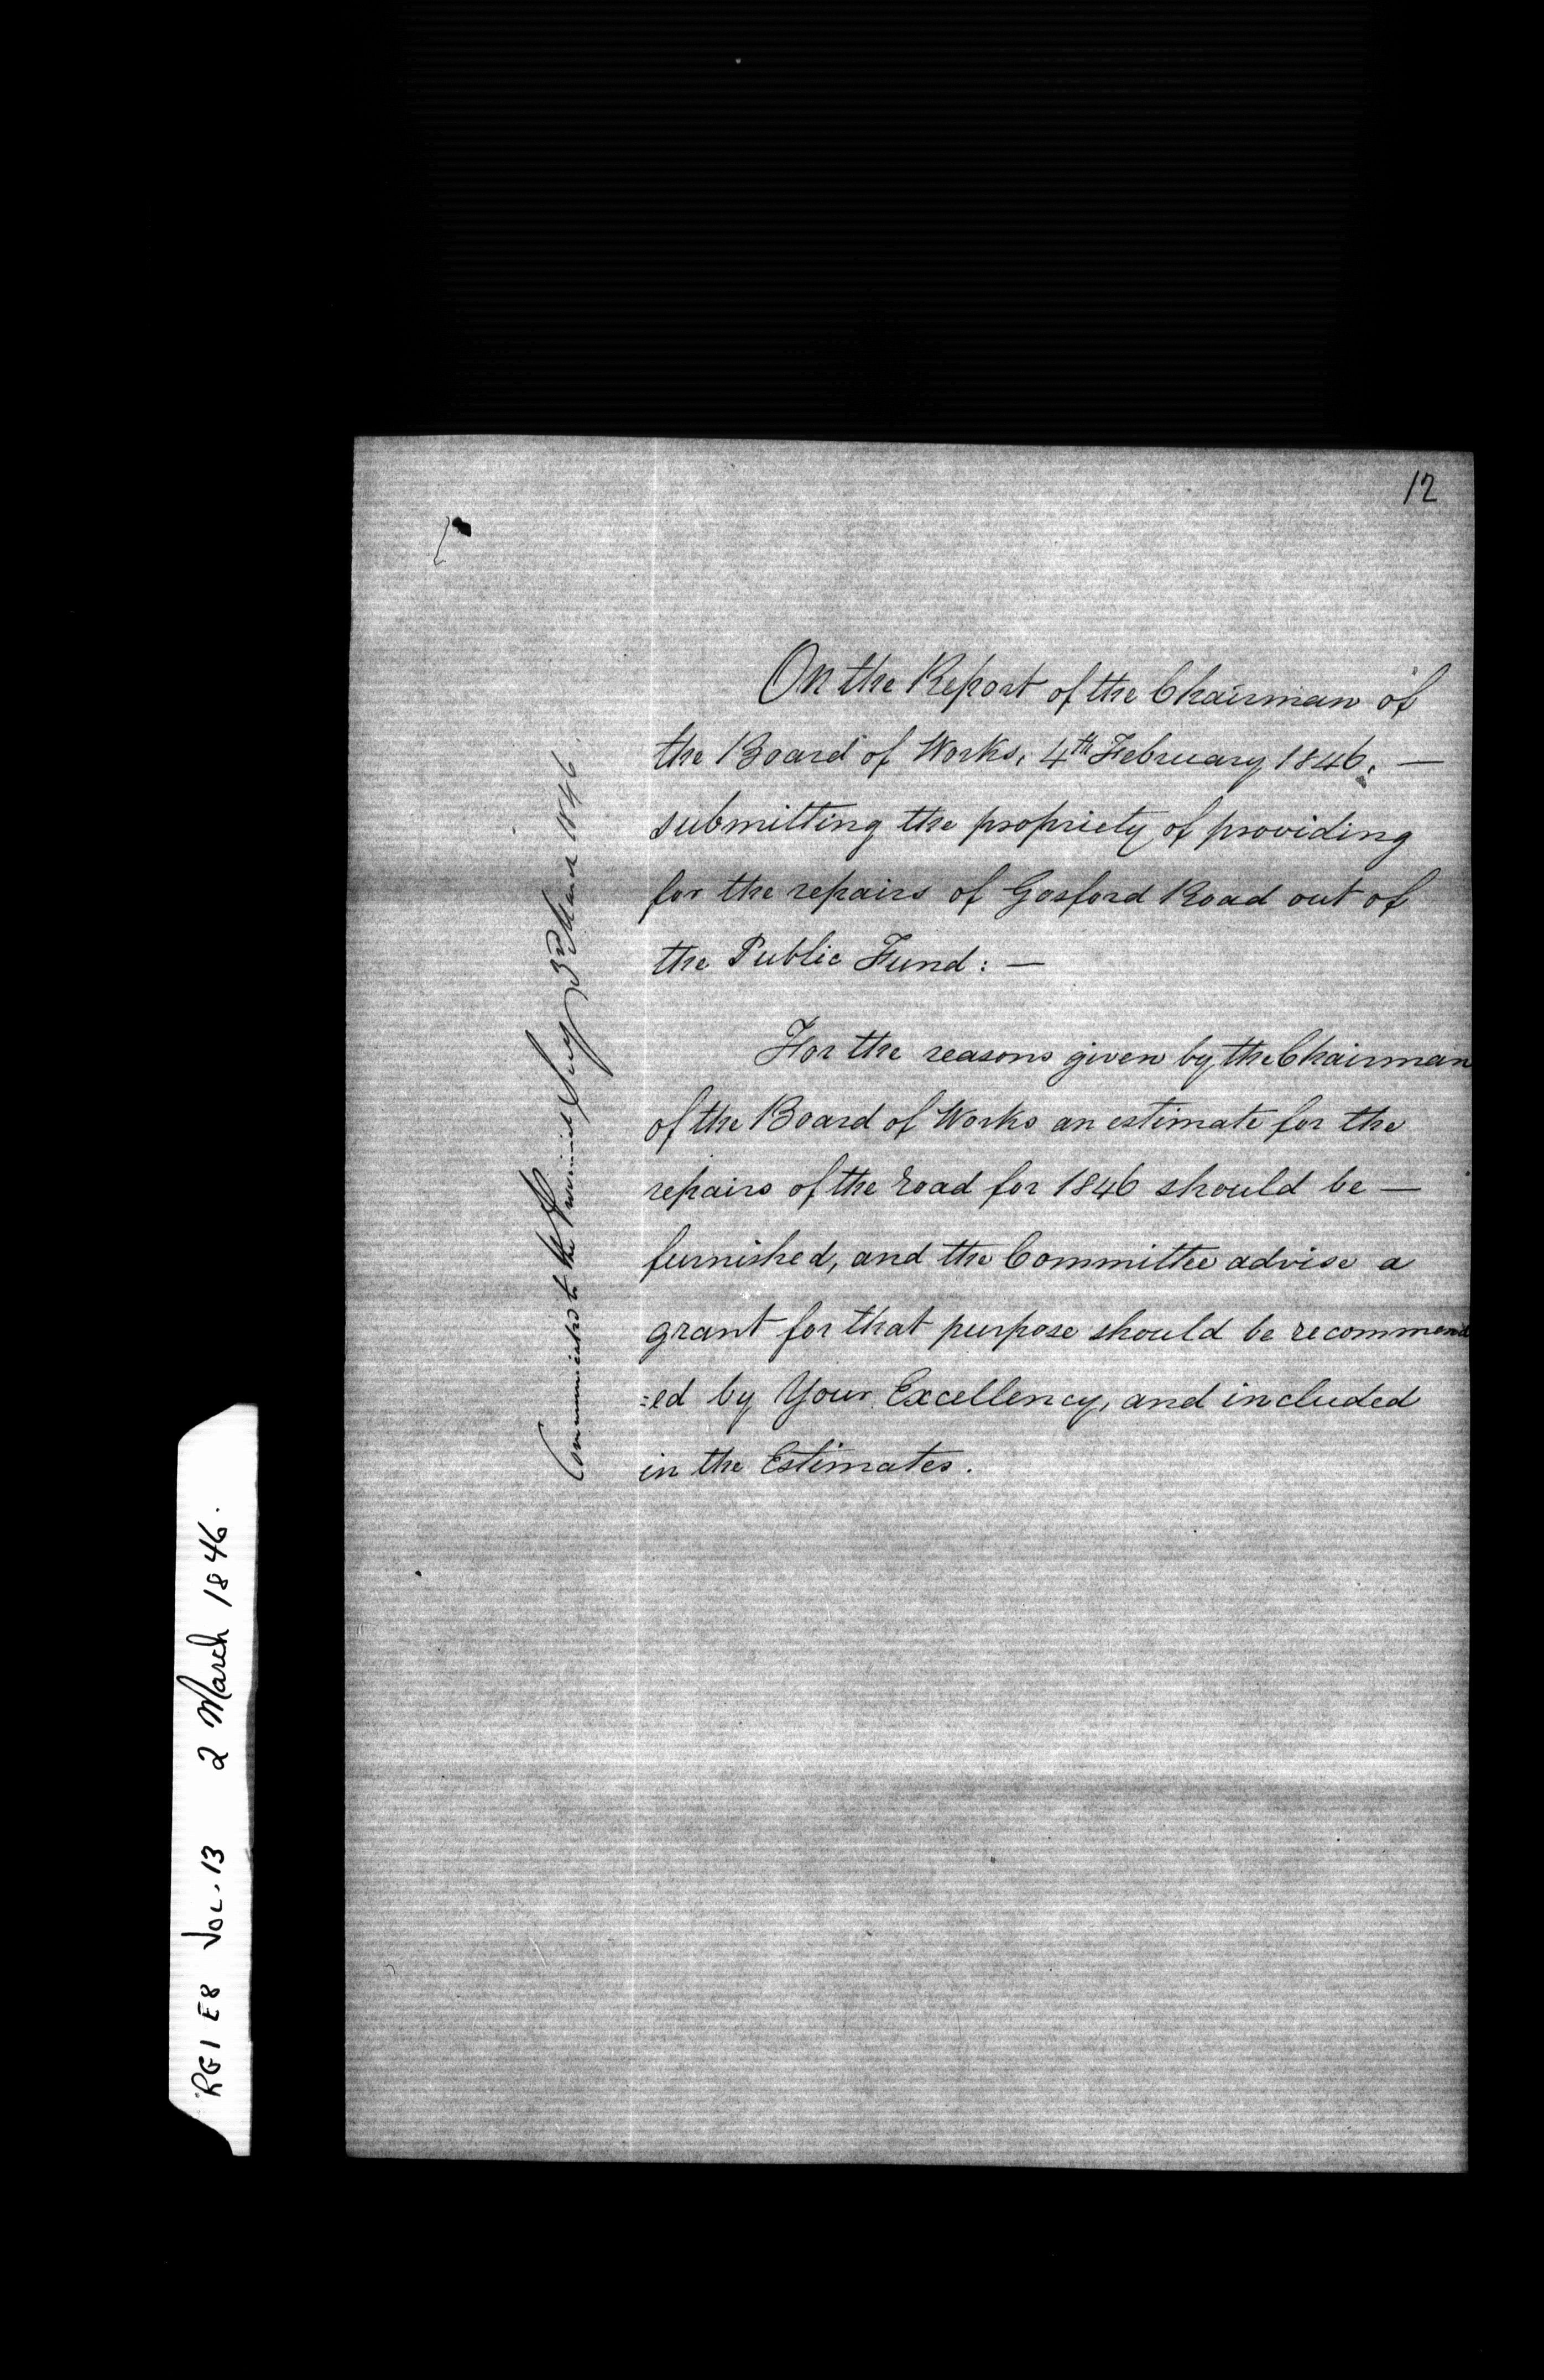 12
On the Report of the Chairman of
the Board of Works, 4th February 1846. —
submitting the propriety of providing
for the repairs of Gosford Road out of
the Public Fund: —
For the reasons given by the Chairman
of the Board of Works an estimate for the
repairs of the road for 1846 should be —
furnished, and the Committee advise a
grant for that purpose should be recommend
=ed by Your Excellency, and included
in the Estimates.
Communicated to the Provincial Secy 3rd March 1846.
RG1 E8 VOL. 13 2 March 1846.